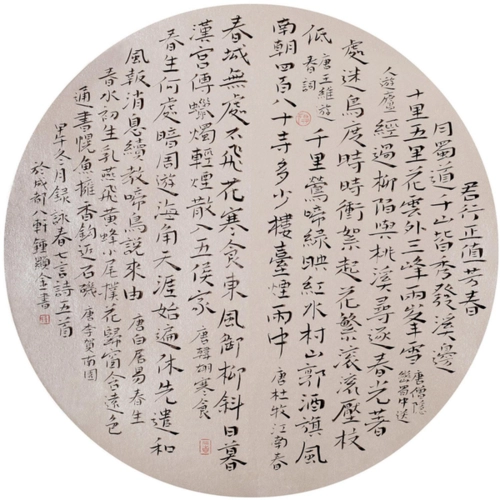 君行正值芳春
月蜀道千山皆秀發溪邊
十里五里花雲外三峰兩峯雪 唐僧隱巒蜀中送
人遊廬 經過柳陌與桃溪尋逐春光著
處迷鳥度時時衝絮起花繁滾滾壓枝
低 唐王維遊春詞 千里鶯啼綠映紅水村山郭酒旗風
南朝四百八十寺多少樓臺煙雨中 唐杜牧江南春
春城無處不飛花寒食東風御柳斜日暮
漢宮傳蠟燭輕煙散入五侯家 唐韓翃寒食
春生何處暗周遊海角天涯始遍休先遣和
風報消息續教啼鳥說來由 唐白居易春生
春水初生乳燕飛黃蜂小尾撲花歸窗含遠色
通書幌魚擁香鉤近石磯 唐李賀南園
甲午冬月錄詠春七言詩五首
於成都八軒鍾顯書